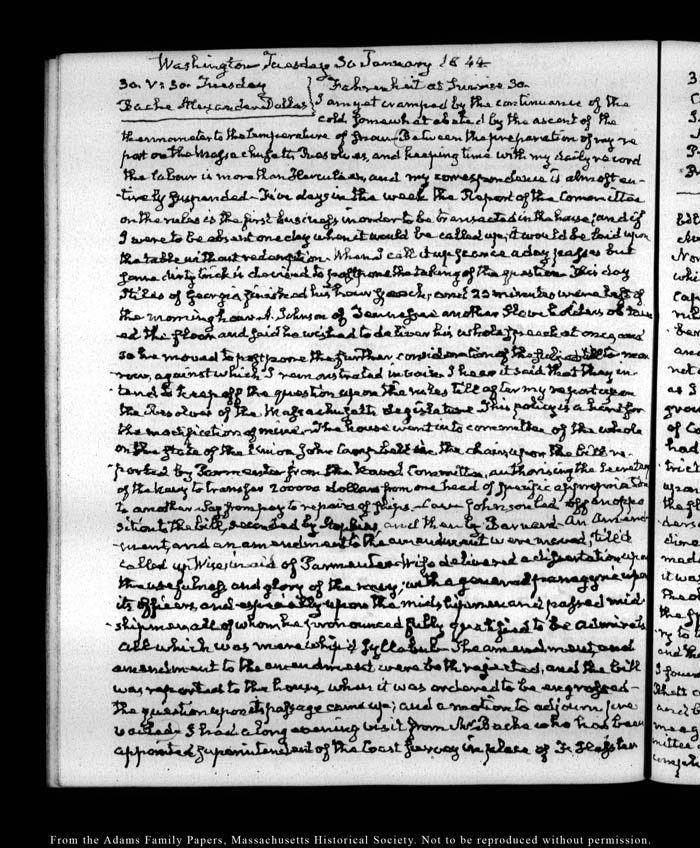 Washington Tuesday 30 January 1844
30. V: 30. Tuesday
Bache Alexander Dallas
Fahrenheit at Sunrise 30.
I am yet cramped by the continuance of the
cold somewhat abated by the ascent of the
thermometer to the temperature of snow. Between the preparation of my re
port on the Massachusetts Resolves, and keeping time with my daily record
the labour is more than Herculean, and my correspondence is almost en-
-tirely suspended- Five days in the week the Report of the Committee
on the rules is the first business in order to be transacted in the house; and if
I were to be absent one day when it would be called up, it would be laid upon
the table without redemption. When I call it up scarce a day passes but
some dirty trick is devised to postpone the taking of the question. This day
Stiles of Georgia finished his hour speech, and 23 minutes were left of
the morning hour. A. Johnson of Tennessee another Slave holder
ed the floor and said he wished to deliver his whole speech at once and
so he moved to postpone the further consideration of the subject till to mor
row, against which I remonstrated in vain. I hear it said that they in-
-tend to keep off the question upon the rules till after my report upon
the Resolves of the Massachusetts Legislature. This policy is a hint for
the modification of mine. The house went into committee of the whole
on the state of the Union John Campbell in the chair, upon the bill re-
-ported by Parmenter from the Naval Committee, authorising the Secretary
of the Navy to transfer 200000 dollars from one head of specific appropriation
to another. Say from pay to repairs of ships- Cave Johnson led off an oppo
sition to the bill, seconded by Hopkins and then by Barnard. An amend
-ment, and an amendment to the amendment were moved, till it
called up Wise, in aid of Parmenter. Wise delivered a dissertation upon
the usefulness and glory of the navy; with a general panegyric upon
its officers, and especially upon the midshipmen and passed mid
-shipmen, all of whom he pronounced fully qualified to be admirals
all which was mere whip'd Syllabub- The amendment, and
amendment to the amendment were both rejected, and the bill
was reported to the house, when it was ordered to be engrossed-
the question upon its passage came up; and a motion to adjourn pre
vailed- I had a long evening visit from Mr Bache who has been
appointed Superintendent of the Coast Survey in place of F. Hassler
From the Adams Family Papers, Massachusetts Historical Society. Not to be reproduced without permission.